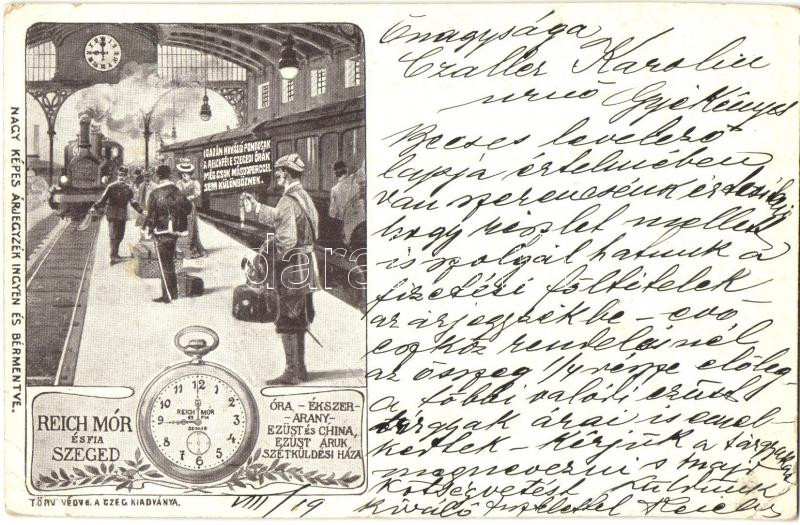 NAGY KÉPES ÁRJEGYZÉK INGYEN ÉS BÉRMENTVE.
IGAZÁN KIVÁLÓ PONTOSAK
A REICHFÉLE SZEGEDI ÓRÁK
MÉG CSAK MÁSODPERCCEL
SEM KÜLÖNBÖZNEK.
REICH MÓR
ÉS FIA
SZEGED
12
REICH MÓR
ÉS FIA
SZEGED
ÓRA-ÉKSZER-
-ARANY-
EZÜST ÉS CHINA,
EZÜST ÁRUK
SZÉTKÜLDÉSI HÁZA
TÖRV. VÉDVE. A CZÉG KIADVÁNYA.
VIII/19
Önagysága
Czaller Karolin
urnő Gyékényes
Becses levelező
lapja értelmében
van szerencsénk értesíteni
hogy részlet mellett
is szolgálhatunk a
fizetési föltételek
az árjegyzékbe -
eszköz rendelésnél
az összeg 1/4 része előleg
a többi valódi ezüst
tárgyak árai is emel
kedtek. Kérjük a tárgyakat
megnevezni s majd
költségvetést küldünk
Kiváló tisztelettel Reich